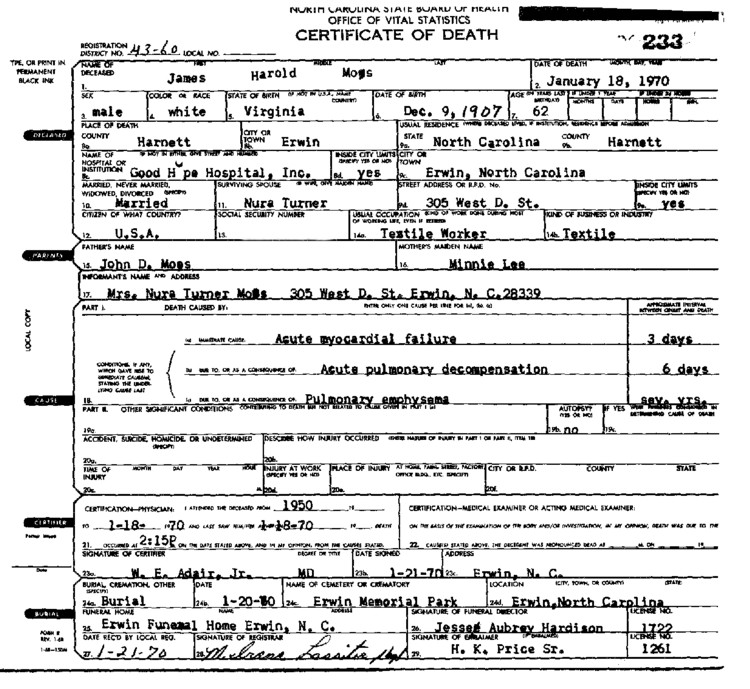 NORTH CAROLINA STATE BOARD OF HEALTH
OFFICE OF VITAL STATISTICS
CERTIFICATE OF DEATH
233
REGISTRATION DISTRICT NO. 43-60 LOCAL NO.
TYPE, OR PRINT IN PERMANENT BLACK INK
NAME OF DECEASED FIRST MIDDLE LAST DATE OF DEATH (MONTH, DAY, YEAR)
1. James Harold Moss 2. January 18, 1970
SEX COLOR OR RACE STATE OF BIRTH (IF NOT IN U.S.A., NAME COUNTRY) DATE OF BIRTH AGE (IN YEARS LAST BIRTHDAY) IF UNDER 1 YEAR MONTHS DAYS IF UNDER 24 HOURS HOURS MIN.
3. male 4. white 5. Virginia 6. Dec. 9, 1907 7. 62
DECEASED
PLACE OF DEATH USUAL RESIDENCE (WHERE DECEASED LIVED, IF INSTITUTION, RESIDENCE BEFORE ADMISSION)
COUNTY CITY OR TOWN STATE COUNTY
8a. Harnett 8b. Erwin 9a. North Carolina 9b. Harnett
NAME OF HOSPITAL OR INSTITUTION (IF NOT IN EITHER, GIVE STREET AND NUMBER) INSIDE CITY LIMITS (SPECIFY YES OR NO) CITY OR TOWN
8c. Good H pe Hospital, Inc. 8d. yes 9c. Erwin, North Carolina
MARRIED, NEVER MARRIED, WIDOWED, DIVORCED (SPECIFY) SURVIVING SPOUSE (IF WIFE, GIVE MAIDEN NAME) STREET ADDRESS OR R.F.D. No. INSIDE CITY LIMITS (SPECIFY YES OR NO)
10. Married 11. Nura Turner 9d. 305 West D. St. 9e. yes
CITIZEN OF WHAT COUNTRY? SOCIAL SECURITY NUMBER USUAL OCCUPATION (KIND OF WORK DONE DURING MOST OF WORKING LIFE, EVEN IF RETIRED) KIND OF BUSINESS OR INDUSTRY
12. U.S.A. 13. 14a. Textile Worker 14b. Textile
PARENTS
FATHER'S NAME MOTHER'S MAIDEN NAME
15. John D. Moss 16. Minnie Lee
INFORMANT'S NAME AND ADDRESS
17. Mrs. Nura Turner Moss 305 West D. St. Erwin, N. C. 28339
PART I. DEATH CAUSED BY: ENTER ONLY ONE CAUSE PER LINE FOR (a), (b), (c) APPROXIMATE INTERVAL BETWEEN ONSET AND DEATH
LOCAL COPY
(a) IMMEDIATE CAUSE Acute myocardial failure 3 days
CONDITIONS, IF ANY, WHICH GAVE RISE TO IMMEDIATE CAUSE (a), STATING THE UNDERLYING CAUSE LAST
(b) DUE TO, OR AS A CONSEQUENCE OF Acute pulmonary decompensation 6 days
CAUSE
18. (c) DUE TO, OR AS A CONSEQUENCE OF Pulmonary emphysema sev. yrs.
PART II. OTHER SIGNIFICANT CONDITIONS CONTRIBUTING TO DEATH BUT NOT RELATED TO CAUSE GIVEN IN PART I (a) AUTOPSY? (YES OR NO) IF YES WERE FINDINGS CONSIDERED IN DETERMINING CAUSE OF DEATH
19a. 19b. no 19c.
ACCIDENT, SUICIDE, HOMICIDE, OR UNDETERMINED (SPECIFY) DESCRIBE HOW INJURY OCCURRED (ENTER NATURE OF INJURY IN PART I OR PART II, ITEM 18)
20a. 20b.
TIME OF INJURY MONTH DAY YEAR HOUR INJURY AT WORK (SPECIFY YES OR NO) PLACE OF INJURY AT HOME, FARM, STREET, FACTORY, OFFICE BLDG., ETC. (SPECIFY) CITY OR R.F.D. COUNTY STATE
20c. M. 20d. 20e. 20f.
CERTIFIER
CERTIFICATION—PHYSICIAN: I ATTENDED THE DECEASED FROM 1950 19 CERTIFICATION—MEDICAL EXAMINER OR ACTING MEDICAL EXAMINER:
TO 1-18- 1970 AND LAST SAW HIM/HER 1-18-70 19 DEATH ON THE BASIS OF THE EXAMINATION OF THE BODY AND/OR INVESTIGATION, IN MY OPINION, DEATH WAS DUE TO THE
21. OCCURRED AT 2:15P ON THE DATE STATED ABOVE, AND IN MY OPINION, FROM THE CAUSES STATED. 22. CAUSE(S) STATED ABOVE. THE DECEDENT WAS PRONOUNCED DEAD AT M. ON 19
SIGNATURE OF CERTIFIER DEGREE OR TITLE DATE SIGNED ADDRESS
23a. W. E. Adair, Jr. MD 23b. 1-21-70 23c. Erwin, N. C.
BURIAL, CREMATION, OTHER (SPECIFY) DATE NAME OF CEMETERY OR CREMATORY LOCATION (CITY, TOWN, OR COUNTY) (STATE)
24a. Burial 24b. 1-20-70 24c. Erwin Memorial Park 24d. Erwin, North Carolina
BURIAL
FUNERAL HOME NAME ADDRESS SIGNATURE OF FUNERAL DIRECTOR LICENSE NO.
25. Erwin Funeral Home Erwin, N. C. 26. Jesse Aubrey Hardison 1722
FORM 8 REV. 1-68
DATE REC'D BY LOCAL REG. SIGNATURE OF REGISTRAR SIGNATURE OF EMBALMER (IF EMBALMED) LICENSE NO.
27. 1-21-70 28. 29. H. K. Price Sr. 1261